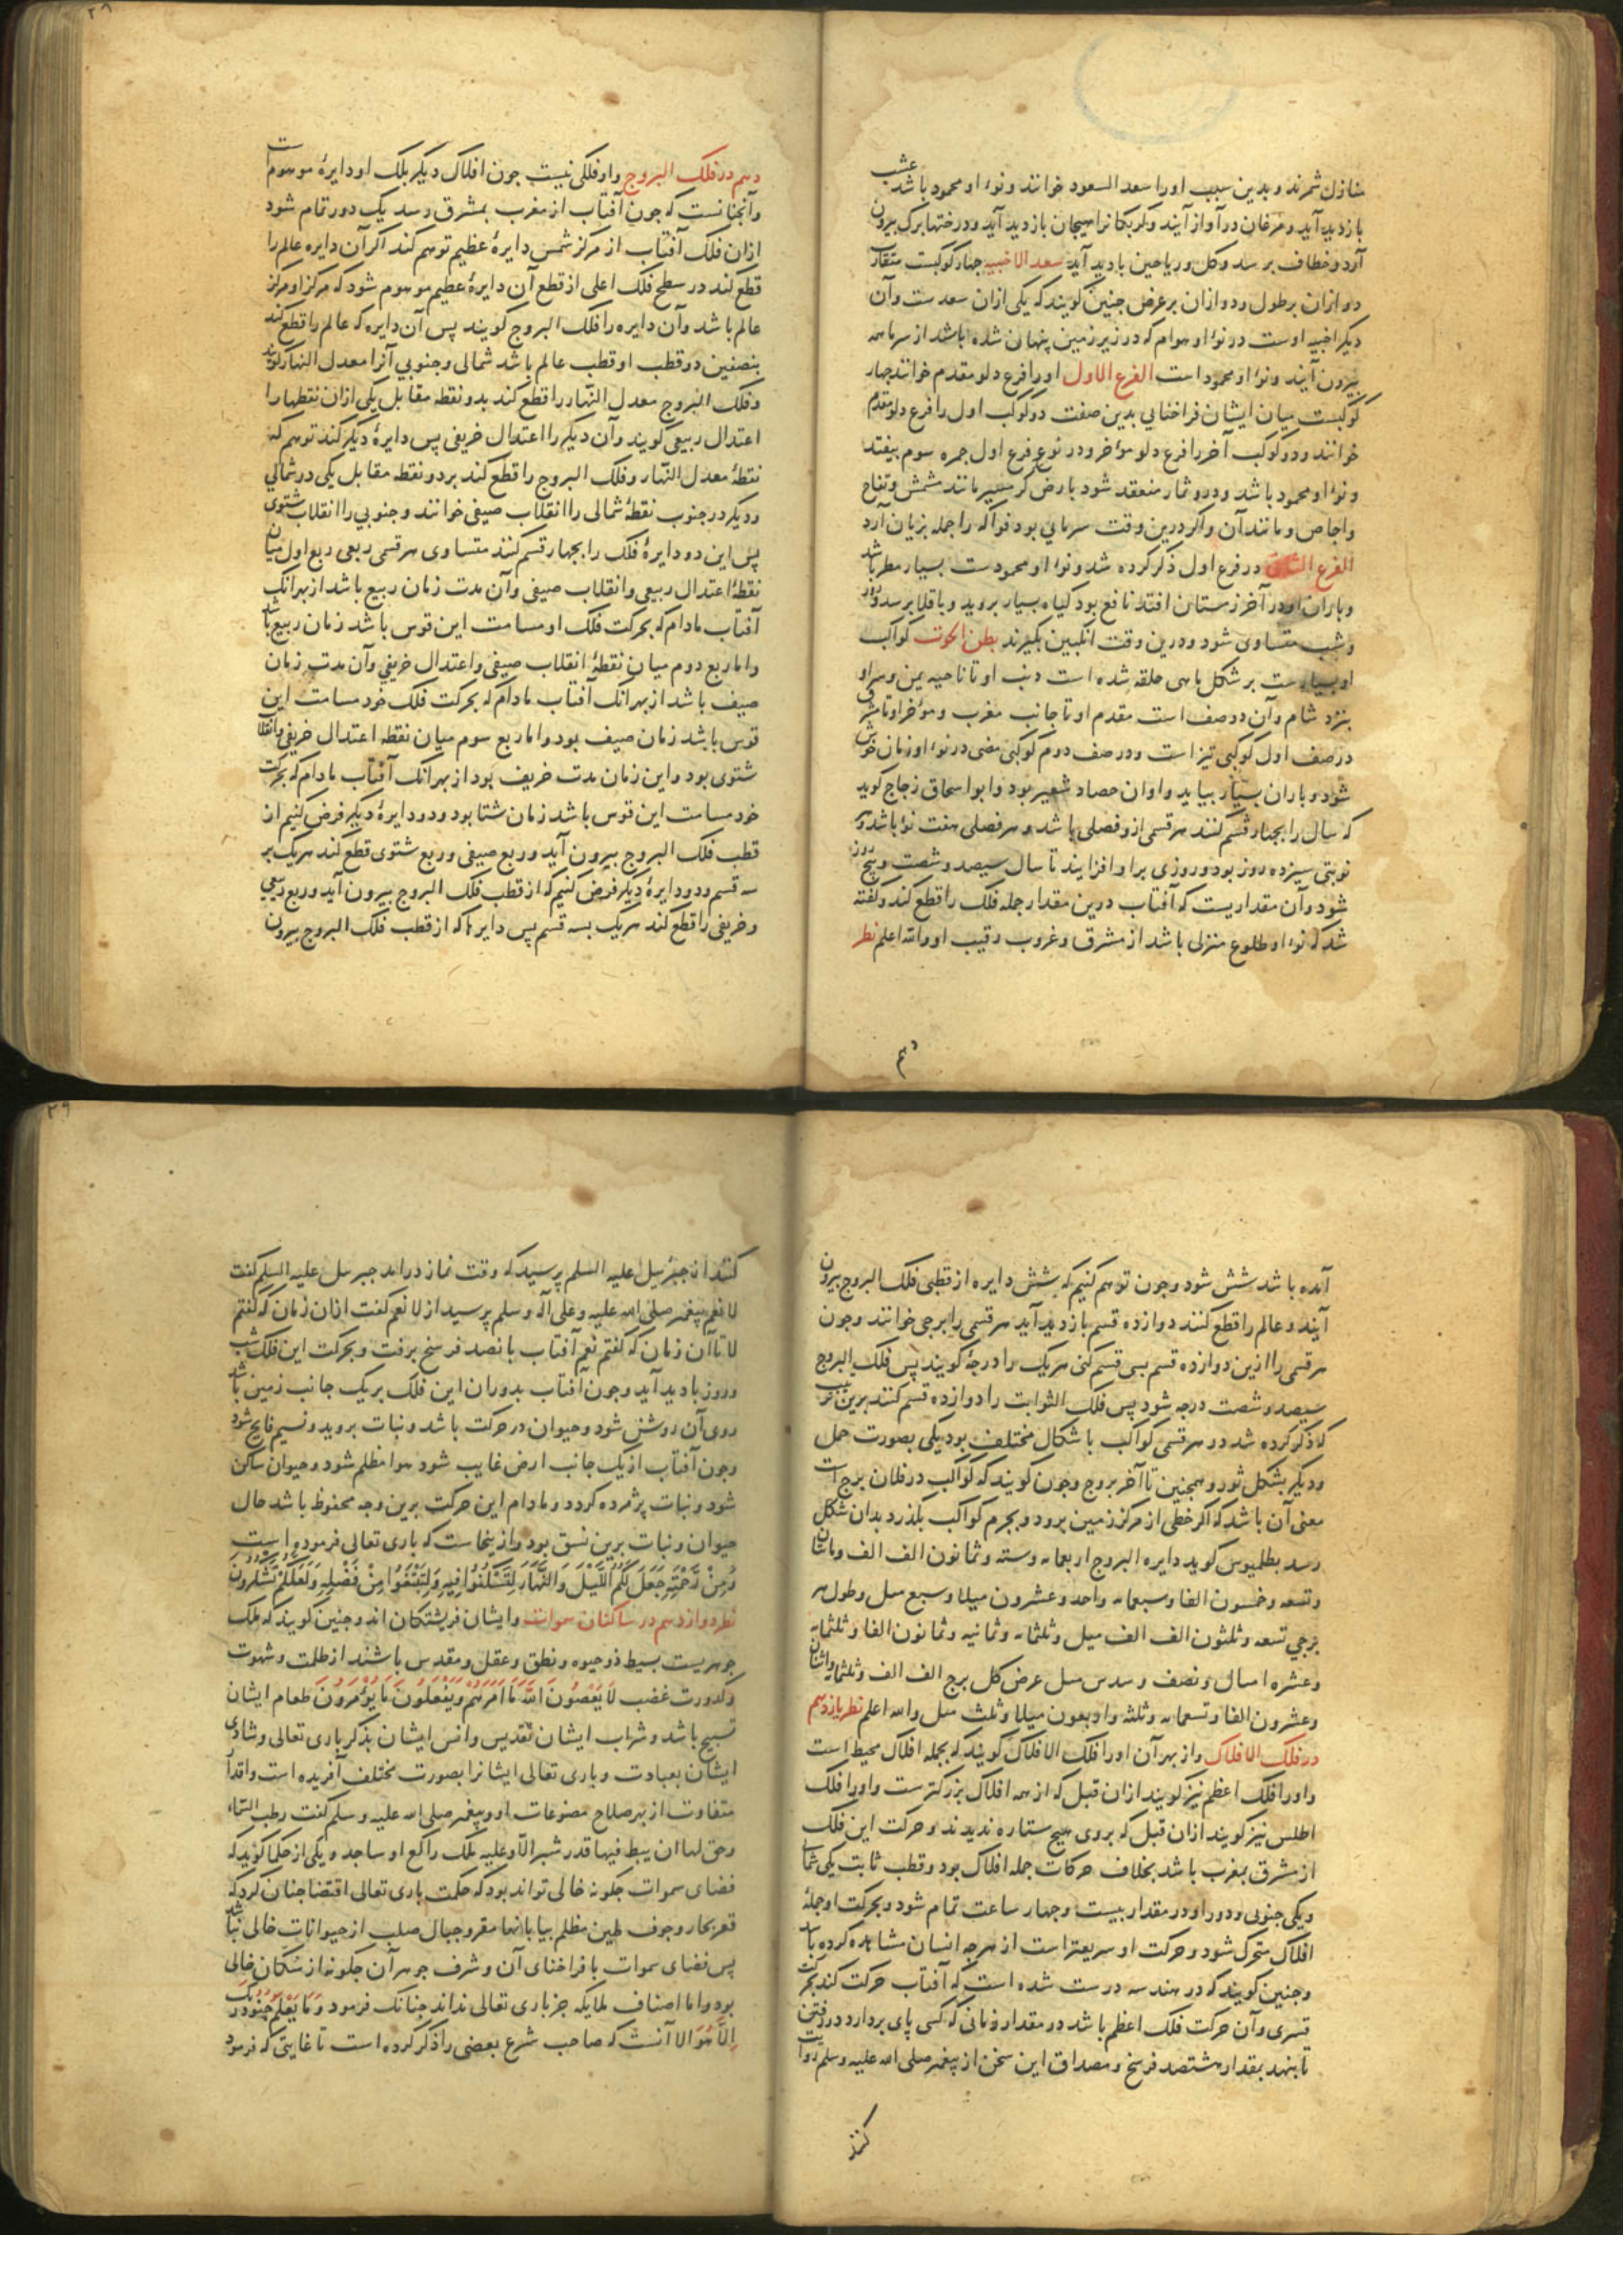 منازل شمرند و بدین سبب او را سعد السعود خوانند و نوء او محمود باشد عشب
باز دید آید و مرغان در آواز آیند و کربکانرا هیجان بازدید آید و درختها برک بیرون
آرد و خطاف برسد و کل و ریاحین بادید آید سعد الاخبیه چنار کوکبست متقارب
دو ازان بر طول و دو ازان بر عرض چنین کویند که یکی ازان سعدست و آن
دیکر اخبیه اوست در نوء او هوام که در زیر زمین پنهان شده باشد از سرما همه
بیرون آیند و نوء او محمود است الفرع الاول او را فرع دلو مقدم خوانند چهار
کوکبست میان ایشان فراخنایی بدین صفت دو کوکب اول را فرع دلو مقدم
خوانند و دو کوکب آخر را فرع دلو مؤخر و در نوع فرع اول جمره سوم بیفتد
و نوء او محمود باشد و درو ثمار منعقد شود بارض کرمسیر مانند مشمش و تفاح
و اجاص و مانند آن و اکر درین وقت سرمایی بود فواکه را جمله بزیان آرد
الفرع الثانی در فرع اول ذکر کرده شد و نوء او محمودست بسیار مطر باشد
و باران او در آخر زمستان افتد نافع بود کیاه بسیار بروید و باقلا برسد و روز
و شب متساوی شود و درین وقت انکبین بکیرند بطن الحوت کواکب
او بسیارست بر شکل ماهی حلقه شده است دنب او تا ناحیه یمن و سر او
بنزد شام و آن دو صف است مقدم او تا جانب مغرب و مؤخر او تا مشرق
در صف اول کوکبی تیز است و در صف دوم کوکبی مضی در نوء او زمان خوش
شود و باران بسیار بیاید و اوان حصاد شعیر بود و ابو اسحاق زجاج کوید
که سال را بچهار قسم کنند هر قسمی ازو فصلی باشد و هر فصلی هفت نوء باشد و هر
نوبتی سیزده روز بود و روزی برو افزایند تا سال سیصد و شصت و پنج روز
شود و آن مقداریست که آفتاب درین مقدار جمله فلک را قطع کند و کفته
شد که نوء او طلوع منزلی باشد از مشرق و غروب رقیب او والله اعلم نظر
دهم
٢٨
دهم در فلک البروج و او فلکی نیست جون افلاک دیکر بلک او دایرهٔ موهوم است
و آنچنانست که جون آفتاب از مغرب بمشرق رسد یک دور تمام شود
ازان فلک آفتاب از مرکز شمس دایرهٔ عظیم توهم کند اکر آن دایره عالم را
قطع کند در سطح فلک اعلی از قطع آن دایرهٔ عظیم موهوم شود که مرکز او مرکز
عالم باشد و آن دایره را فلک البروج کویند پس آن دایره که عالم را قطع کند
بنصفین دو قطب او قطب عالم باشد شمالی و جنوبی آنرا معدل النهار کویند
و فلک البروج معدل النهار را قطع کند بدو نقطه مقابل یکی ازان نقطها را
اعتدال ربیعی کویند و آن دیکر را اعتدال خریفی پس دایرهٔ دیکر کند توهم که
نقطهٔ معدل النهار و فلک البروج را قطع کند بر دو نقطه مقابل یکی در شمالی
و دیکر در جنوب نقطهٔ شمالی را انقلاب صیفی خوانند و جنوبی را انقلاب شتوی
پس این دو دایرهٔ فلک را بچهار قسم کنند متساوی هر قسمی ربعی ربع اول میان
نقطهٔ اعتدال ربیعی و انقلاب صیفی و آن مدت زمان ربیع باشد از بهر آنک
آفتاب مادام که بحرکت فلک او مسامت این قوس باشد زمان ربیع باشد
و اما ربع دوم میان نقطهٔ انقلاب صیفی و اعتدال خریفی و آن مدت زمان
صیف باشد از بهر آنک آفتاب مادام که بحرکت فلک خود مسامت این
قوس باشد زمان صیف بود و اما ربع سوم میان نقطه اعتدال خریفی و انقلاب
شتوی بود و این زمان مدت خریف بود از بهر آنک آفتاب مادام که بحرکت
خود مسامت این قوس باشد زمان شتا بود و دو دایرهٔ دیکر فرض کنیم از
قطب فلک البروج بیرون آید و ربع صیفی و ربع شتوی قطع کند هر یک بر
سه قسم و دو دایرهٔ دیکر فرض کنیم که از قطب فلک البروج بیرون آید و ربع ربیعی
و خریفی را قطع کند هر یک بسه قسم پس دایرها که از قطب فلک البروج بیرون
آمده باشد شش شود و جون توهم کنیم که شش دایره از قطبی فلک البروج بیرون
آیند و عالم را قطع کنند دوازده قسم بازدید آید هر قسمی را برجی خوانند و جون
هر قسمی را ازین دوازده قسم بسی قسم کنی هر یک را درجهٔ کویند پس فلک البروج
سیصد و شصت درجه شود پس فلک الثوابت را دوازده قسم کنند برین ترتیب
که ذکر کرده شد در هر قسمی کواکب باشکال مختلف بود یکی بصورت حمل
و دیکر بشکل ثور و همچنین تا آخر بروج و جون کویند که کواکب در فلان برج است
معنی آن باشد که اکر خطی از مرکز زمین برود و بجرم کواکب بکذرد بدان شکل
رسد بطلمیوس کوید دایره البروج اربعمایه و سته و ثمانون الف الف و مایتان
و تسعه و خمسون الفا و سبعمایه و احد و عشرون میلا و سبع میل و طول هر
برجی تسعه و ثلثون الف الف میل و ثلثمایه و ثمانیه و ثمانون الفا و ثلثمایه
و عشره امیال و نصف و سدس میل عرض کل برج الف الف و ثلثمایه و اثنان
و عشرون الفا و تسعمایه و ثلثه و اربعون میلا و ثلث میل والله اعلم نظر یازدهم
در فلک الافلاک و از بهر آن او را فلک الافلاک کویند که بجمله افلاک محیط است
و او را فلک اعظم نیز کویند ازان قبل که از همه افلاک بزرکترست و او را فلک
اطلس نیز کویند ازان قبل که بروی هیچ ستاره ندیدند و حرکت این فلک
از مشرق بمغرب باشد بخلاف حرکات جمله افلاک بود و قطب ثابت یکی شمالی
و یکی جنوبی و دور او در مقدار بیست و چهار ساعت تمام شود و بحرکت او جملهٔ
افلاک متحرک شود و حرکت او سریعتر است از هرچه انسان مشاهده کرده باشد
و چنین کویند که در هندسه درست شده است که آفتاب حرکت کند بحرکت
قسری و آن حرکت فلک اعظم باشد در مقدار زمانی که کسی پای بردارد در رفتن
تا بنهد بمقدار هشتصد فرسخ و مصداق این سخن از پیغمبر صلی الله علیه وسلم روایت
کنند
٢٩
کنند از جبرئیل علیه السلم پرسید که وقت نماز در آمد جبرئیل علیه السلم کفت
لا نعم پیغمبر صلی الله علیه وعلی آله وسلم پرسید از لا نعم کفت ازان زمان که کفتم
لا تا آن زمان که کفتم نعم آفتاب پانصد فرسخ برفت و بحرکت این فلک شب
و روز بادید آید و جون آفتاب بدوران این فلک بر یک جانب زمین باشد
روی آن روشن شود و حیوان در حرکت باشد و نبات بروید و نسیم فایح شود
و جون آفتاب از یک جانب ارض غایب شود هوا مظلم شود و حیوان ساکن
شود و نبات پژمرده کردد و مادام این حرکت برین وجه محفوظ باشد حال
حیوان و نبات برین نسق بود و از ینجاست که باری تعالی فرموده است
وَمِنْ رَحْمَتِهِ جَعَلَ لَكُمُ اللَّيْلَ وَالنَّهَارَ لِتَسْكُنُوا فِيهِ وَلِتَبْتَغُوا مِنْ فَضْلِهِ وَلَعَلَّكُمْ تَشْكُرُونَ
نظر دوازدهم در ساکنان سموات و ایشان فریشتکان اند و چنین کویند که ملک
جوهریست بسیط ذو حیوه و نطق و عقل و مقدس باشند از ظلمت و شهوت
و کدورت غضب لَا يَعْصُونَ اللَّهَ مَا أَمَرَهُمْ وَيَفْعَلُونَ مَا يُؤْمَرُونَ طعام ایشان
تسبیح باشد و شراب ایشان تقدیس و انس ایشان بذکر باری تعالی و شادی
ایشان بعبادت و باری تعالی ایشانرا بصورت مختلف آفریده است و اقدار
متفاوت از بهر صلاح مصنوعات او و پیغمبر صلی الله علیه وسلم کفت اطت السماء
وحق لها ان یبط فیها قدر شبر الا وعلیه ملک راکع او ساجد و یکی از حکما کوید که
فضای سموات جکونه خالی تواند بود که حکمت باری تعالی اقتضا چنان کرد که
قعر بحار و جوف طین مظلم بیابانها مقر و جبال صلب از حیوانات خالی نباشد
پس فضای سموات با فراخنای آن و شرف جوهر آن جکونه از سُکان خالی
بود و اما اصناف ملایکه جز باری تعالی نداند چنانک فرمود وَمَا يَعْلَمُ جُنُودَ رَبِّكَ
إِلَّا هُوَ الا آنست که صاحب شرع بعضی را ذکر کرده است تا غایتی که فرمود